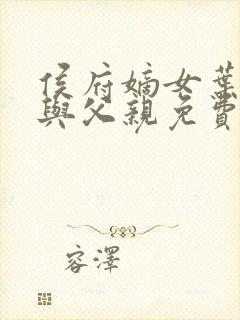 侯府嫡女葉
與父親免費
容澤